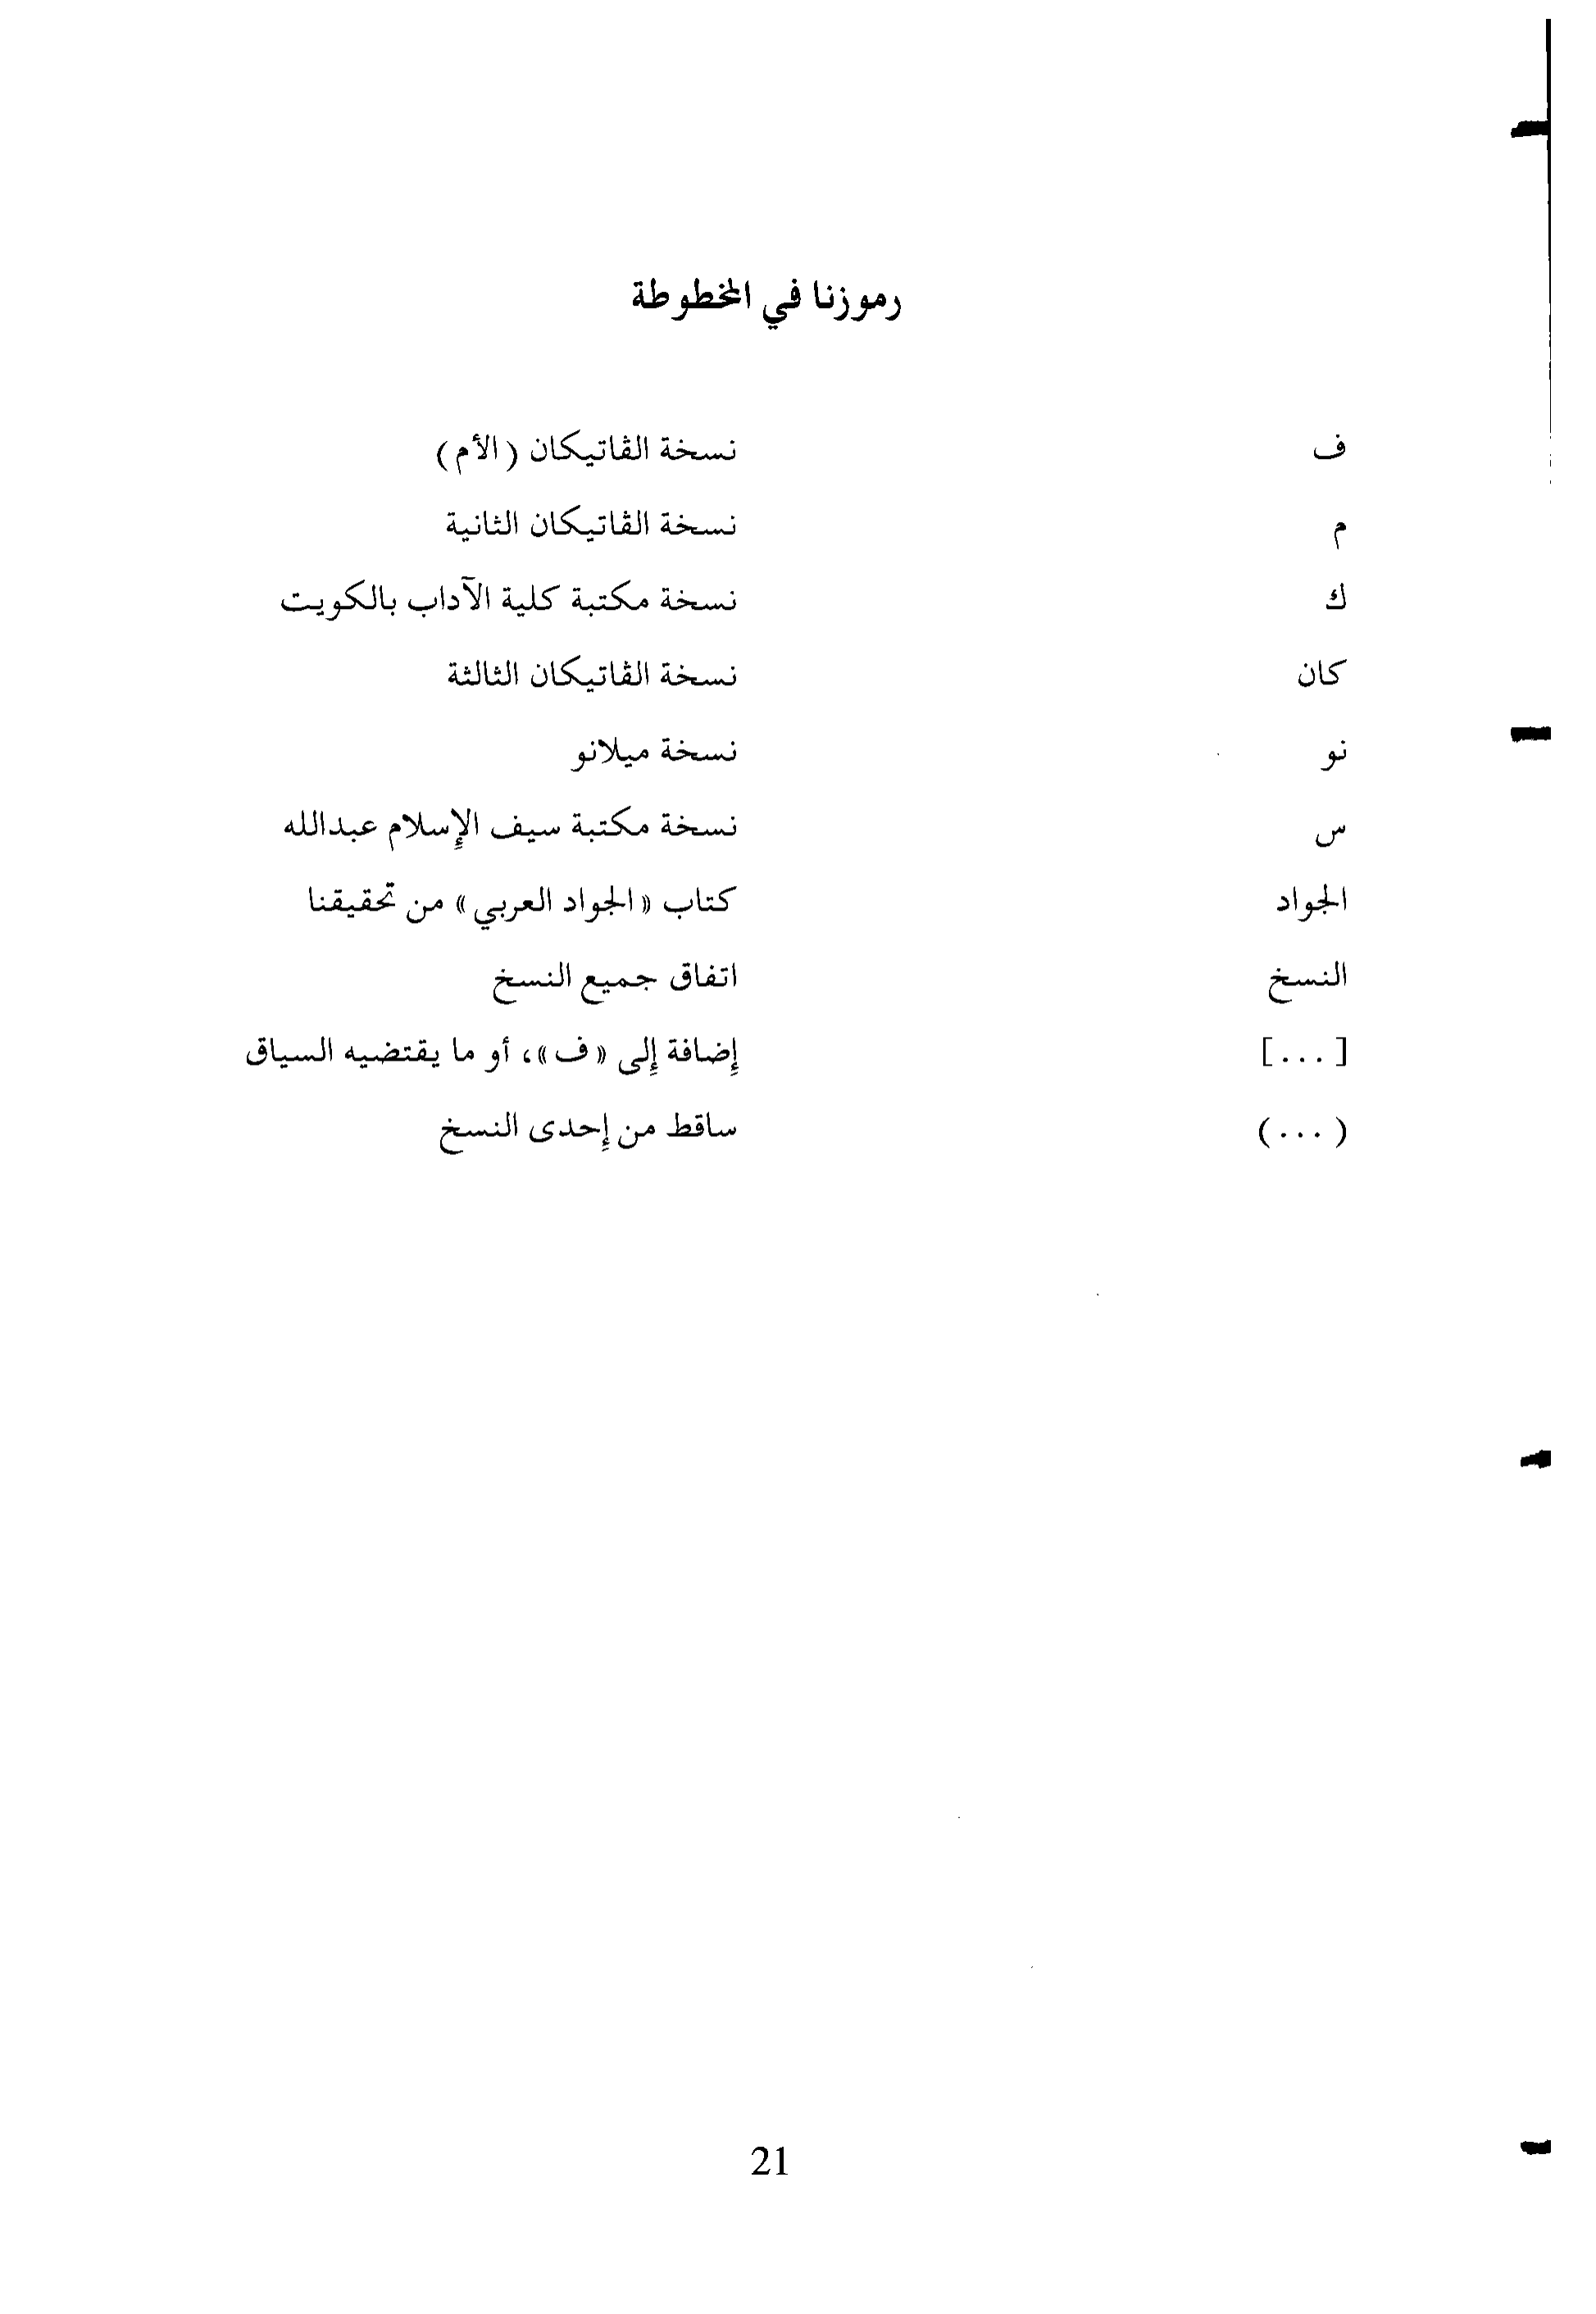 رموزنا في المخطوطة
ف نسخة الڤاتيكان (الأم)
م نسخة الڤاتيكان الثانية
ك نسخة مكتبة كلية الآداب بالكويت
كان نسخة الڤاتيكان الثالثة
نو نسخة ميلانو
س نسخة مكتبة سيف الإسلام عبدالله
الجواد كتاب «الجواد العربي» من تحقيقنا
النسخ اتفاق جميع النسخ
[...] إضافة إلى «ف»، أو ما يقتضيه السياق
(...) ساقط من إحدى النسخ
21